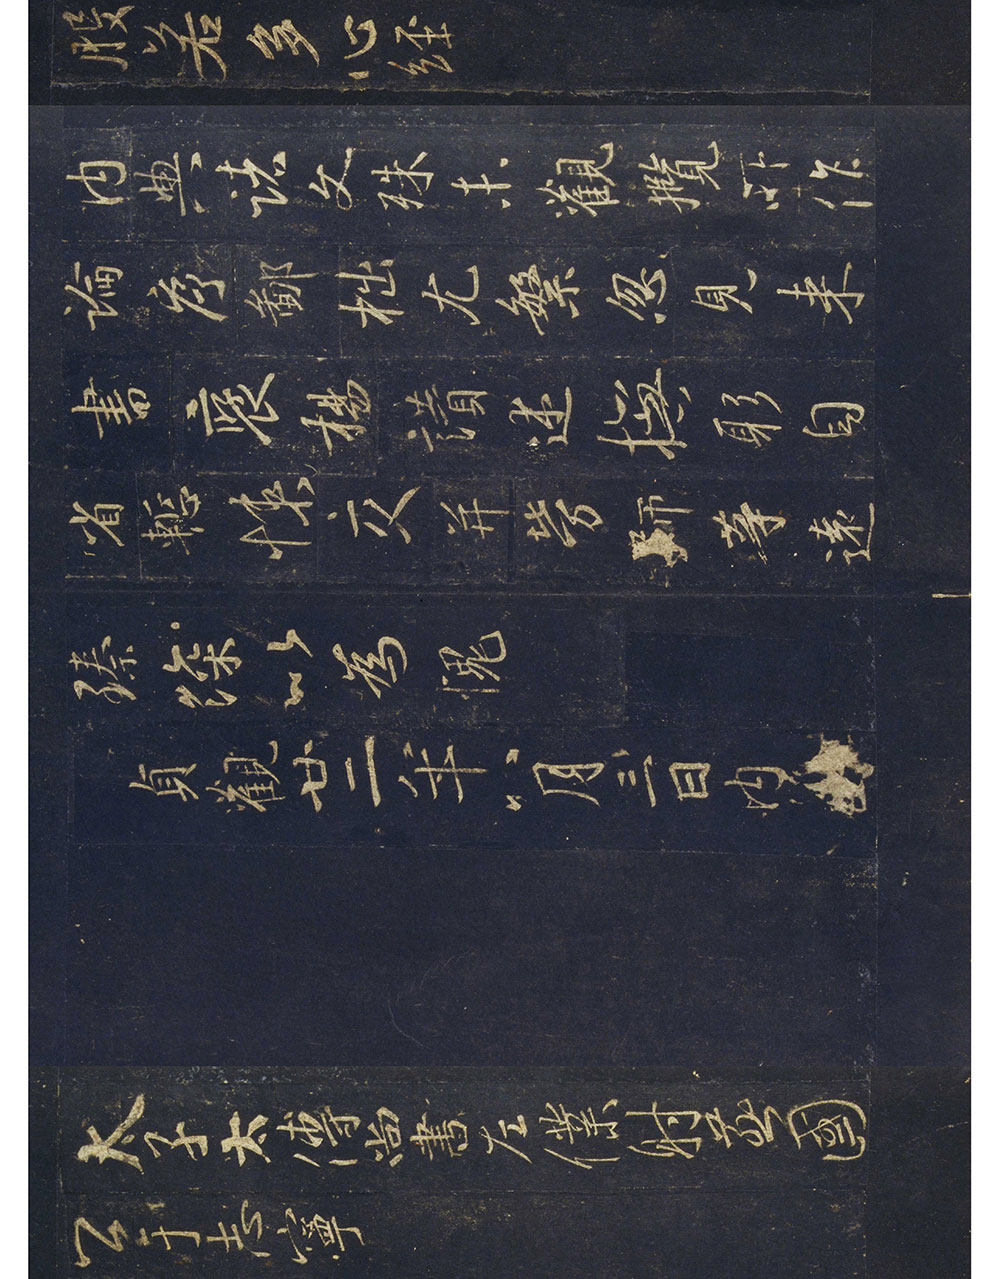 般若多心經
內典諸文殊未觀攬所作
論序鄙拙尤繁忽見來
書褒揚讚述撫躬自
省慙悚交并勞師等遠
臻深以為愧
貞觀廿二年八月三日內
太子太傅尚書左僕射燕國
公于志寧